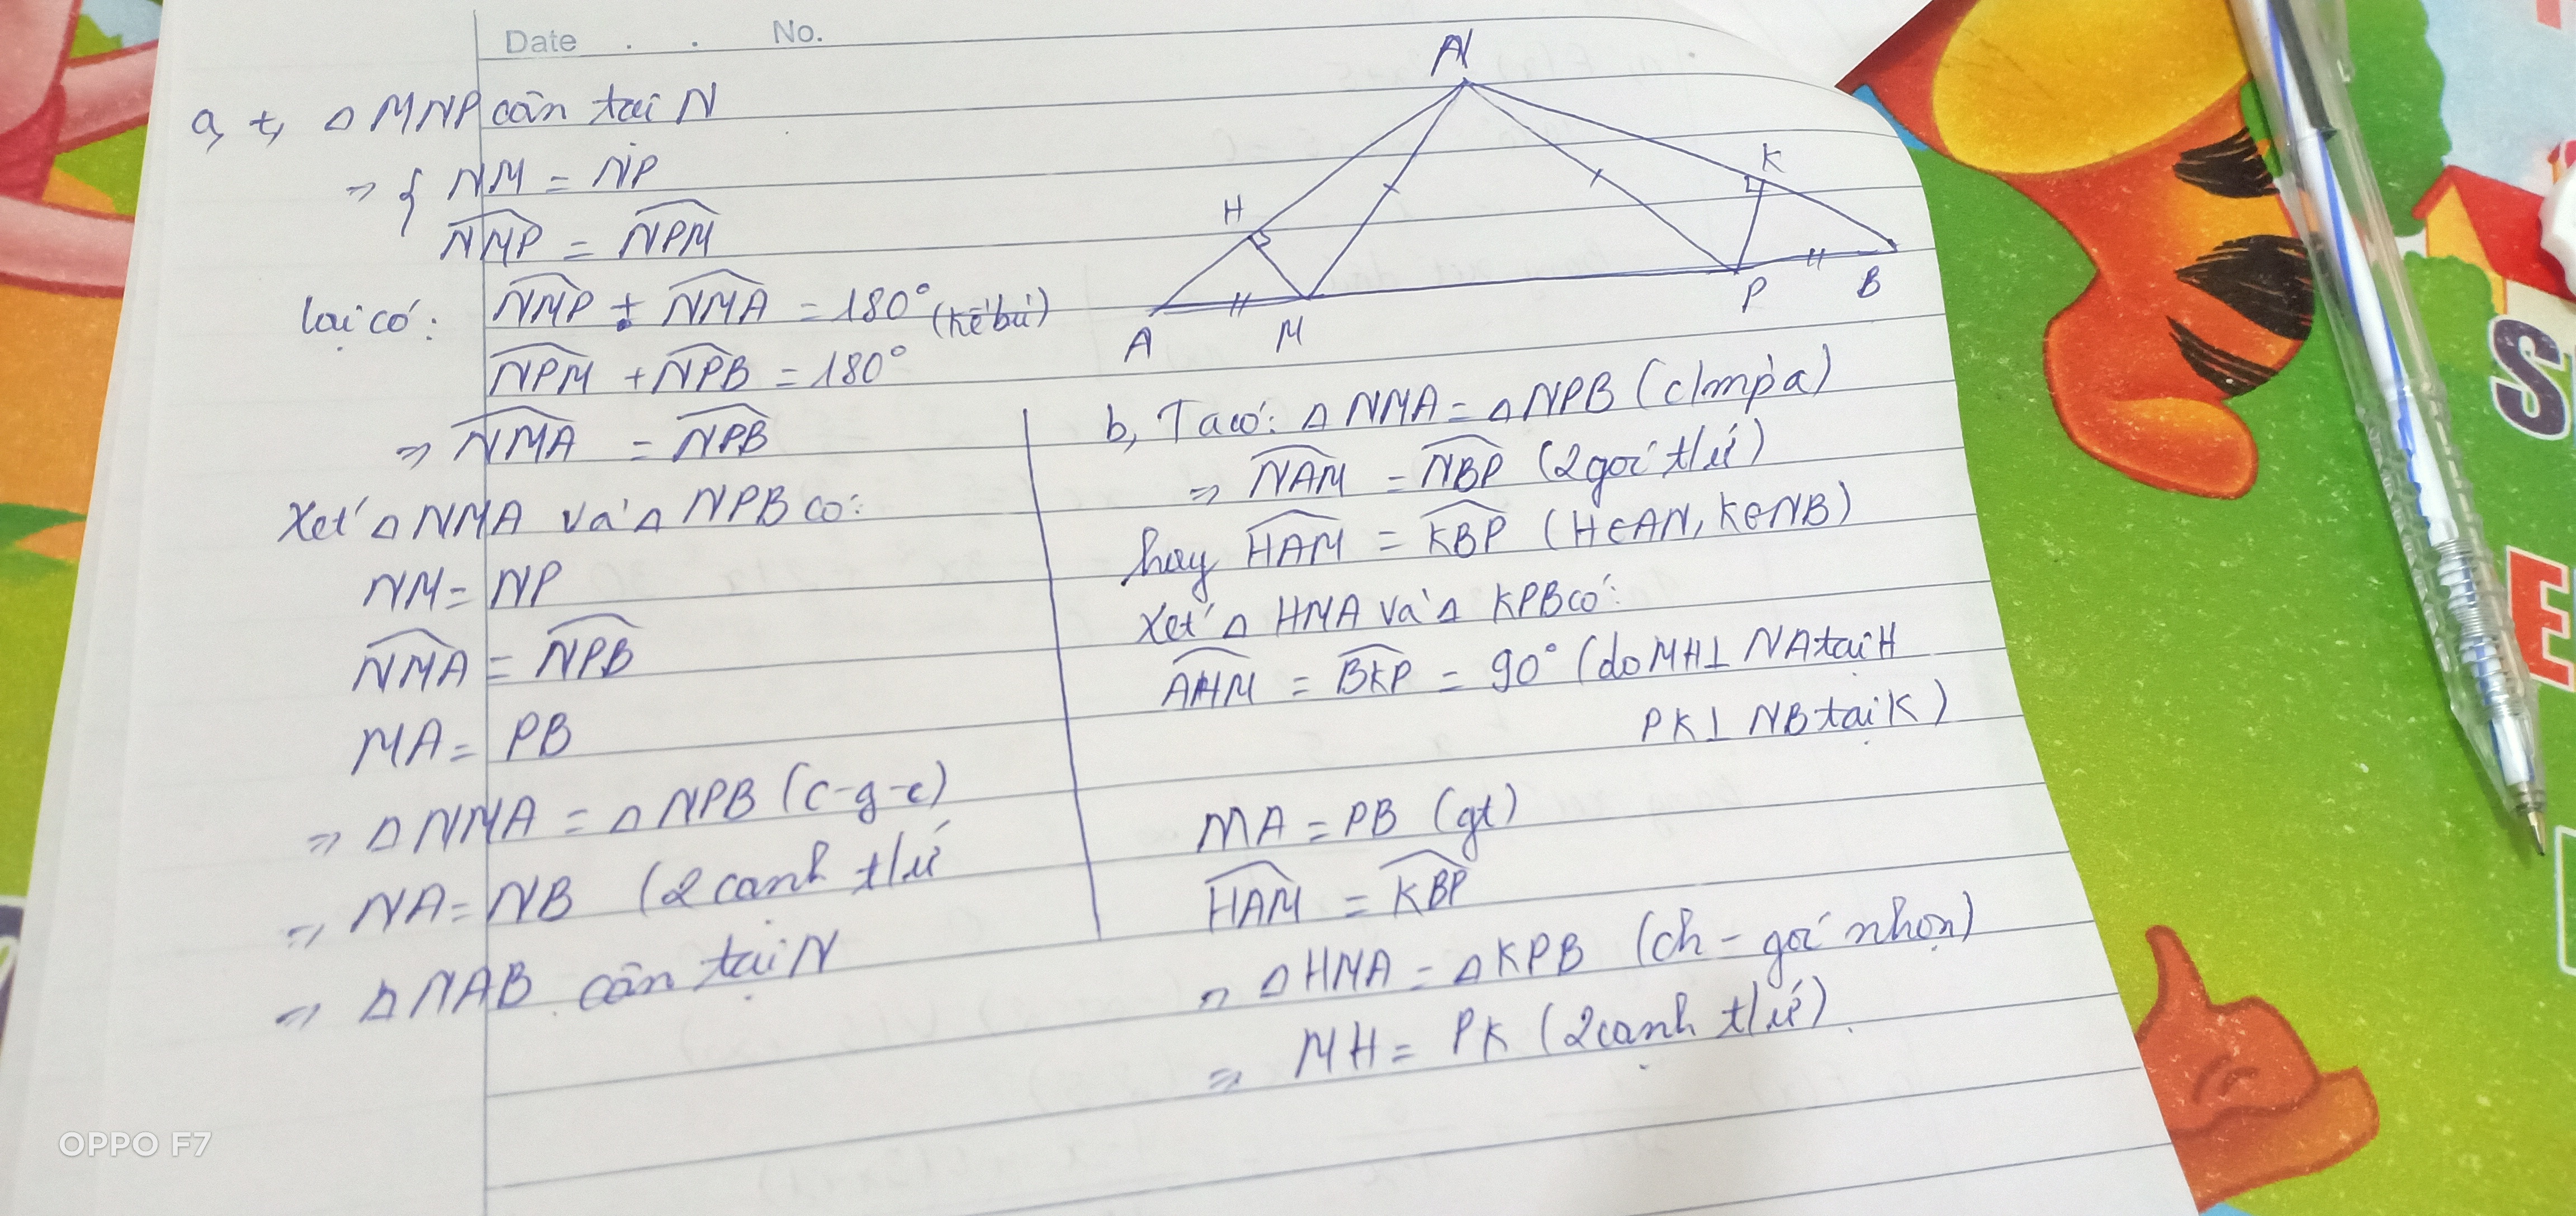 Date . . No.
a, +, △ MNP cân tại N
=> { NM = NP
NMP = NPM
lại có: NMP + NMA = 180° (kề bù)
NPM + NPB = 180°
=> NMA = NPB
Xét △ NMA và △ NPB có:
NM = NP
NMA = NPB
MA = PB
=> △ NMA = △ NPB (c-g-c)
=> NA = NB (2 cạnh t/ứ
=> △ NAB cân tại N
N
H
K
A
M
P
B
b, Ta có: △ NMA = △ NPB (c/m p a)
=> NAM = NBP (2 góc t/ứ)
hay HAM = KBP (H∈AN, K∈NB)
Xét △ HMA và △ KPB có:
AHM = BKP = 90° (do MH⊥ NA tại H
PK⊥ NB tại K)
MA = PB (gt)
HAM = KBP
=> △ HMA = △ KPB (ch - góc nhọn)
=> MH = PK (2 cạnh t/ứ).
OPPO F7
S
E